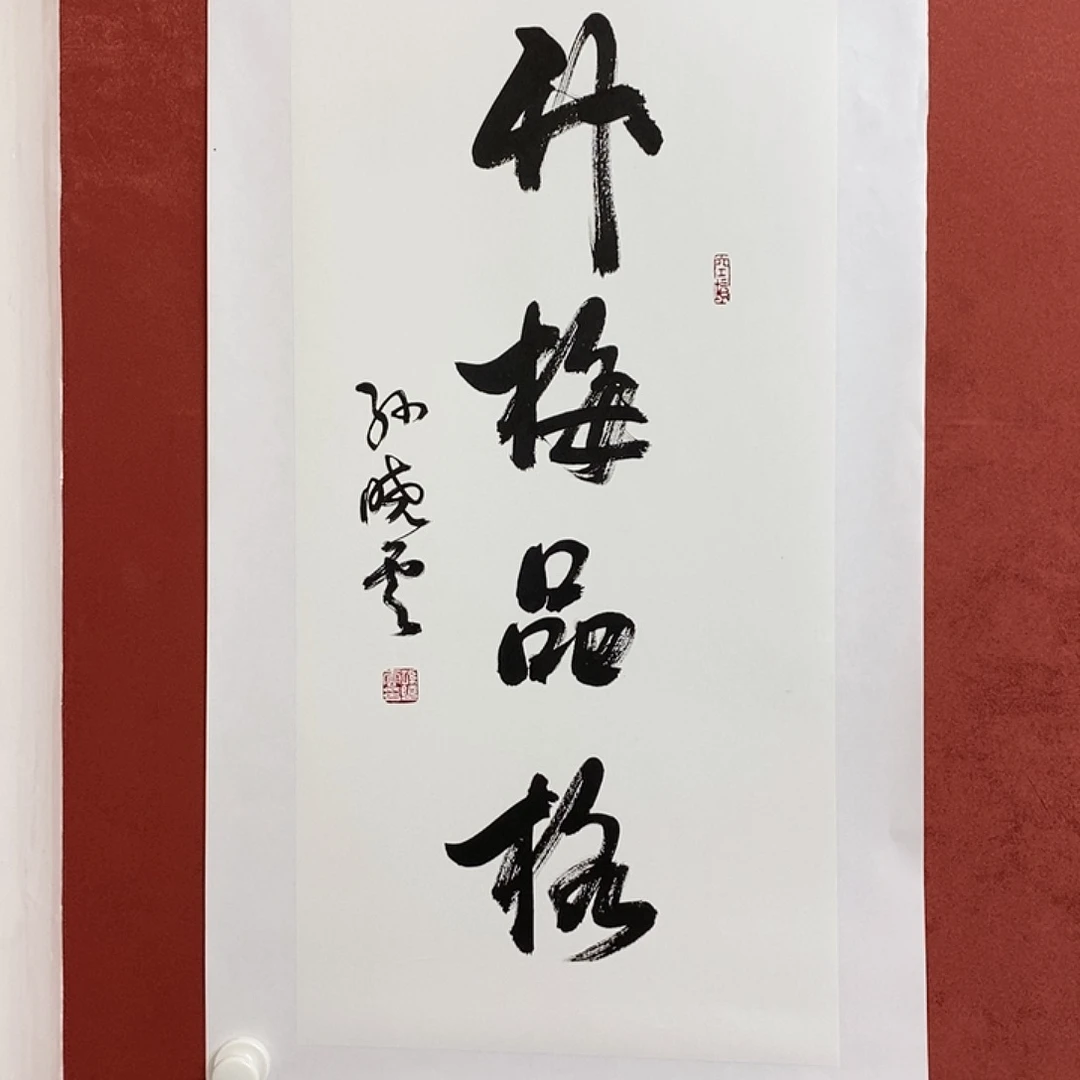 竹梅品格
孙晓云